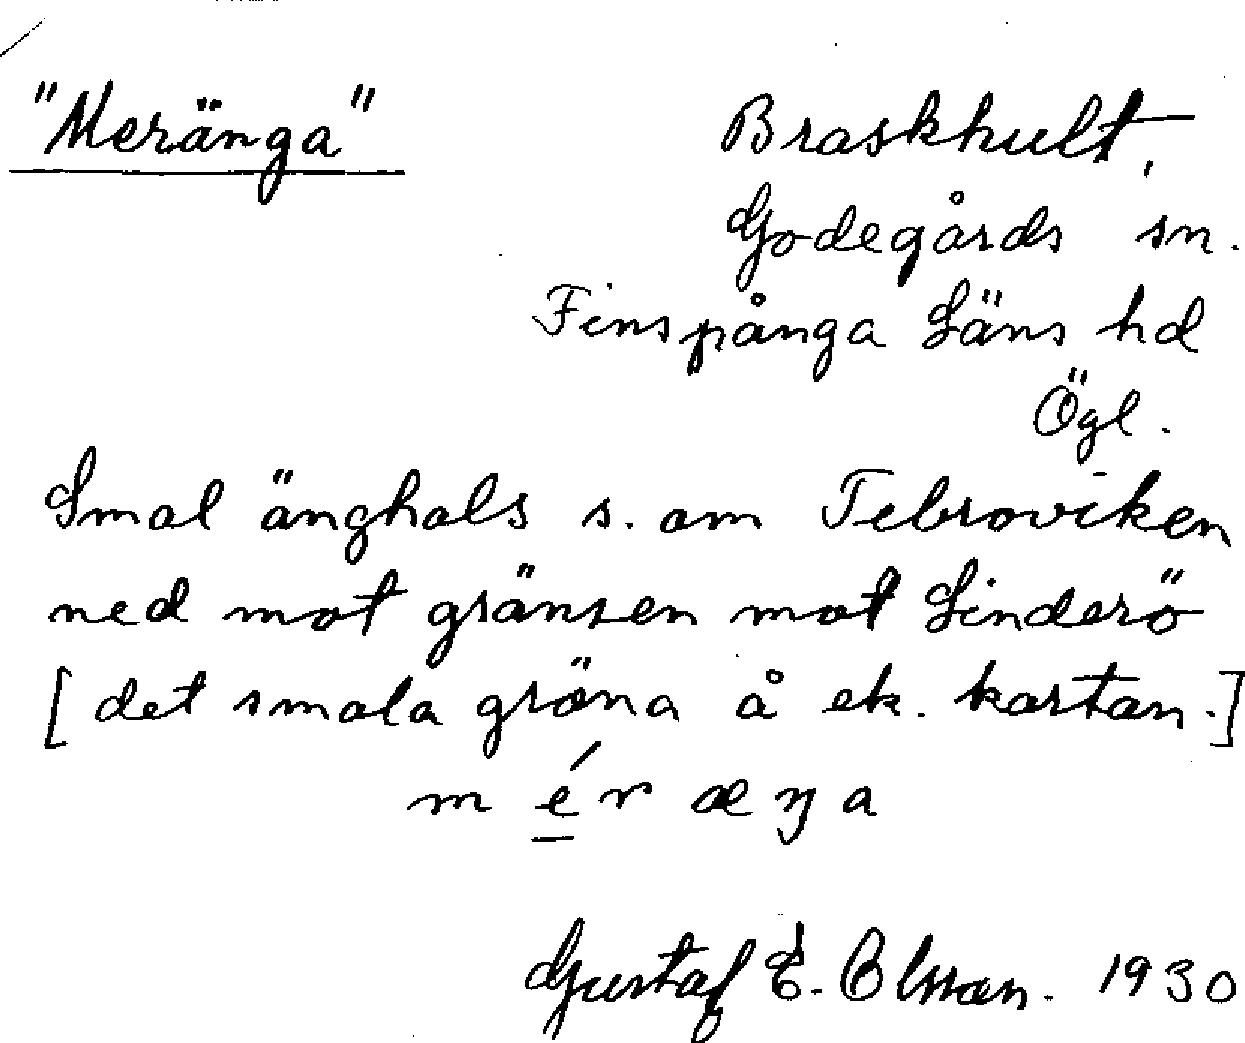 "Meränga"
Braskhult,
Godegårds sn.
Finspånga Läns hd
Ögl.
Smal änghals s. om Tebroviken
ned mot gränsen mot Linderö
[det smala gröna å ek. kartan.]
m é r æ ŋ a
Gustaf E. Olsson. 1930